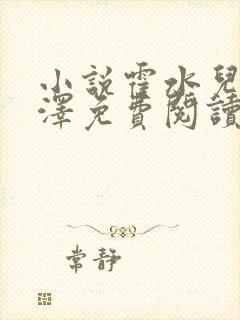 小說霍水兒
澤免費閱讀
常靜